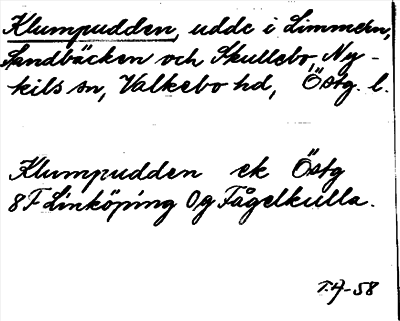 Klumpudden, udde i Limmern,
Sandbäcken och Skullebo, Ny-
kils sn, Valkebo hd, Östg. l.
Klumpudden ek Östg
8F Linköping 0g Fågelkulla.
T.4-58